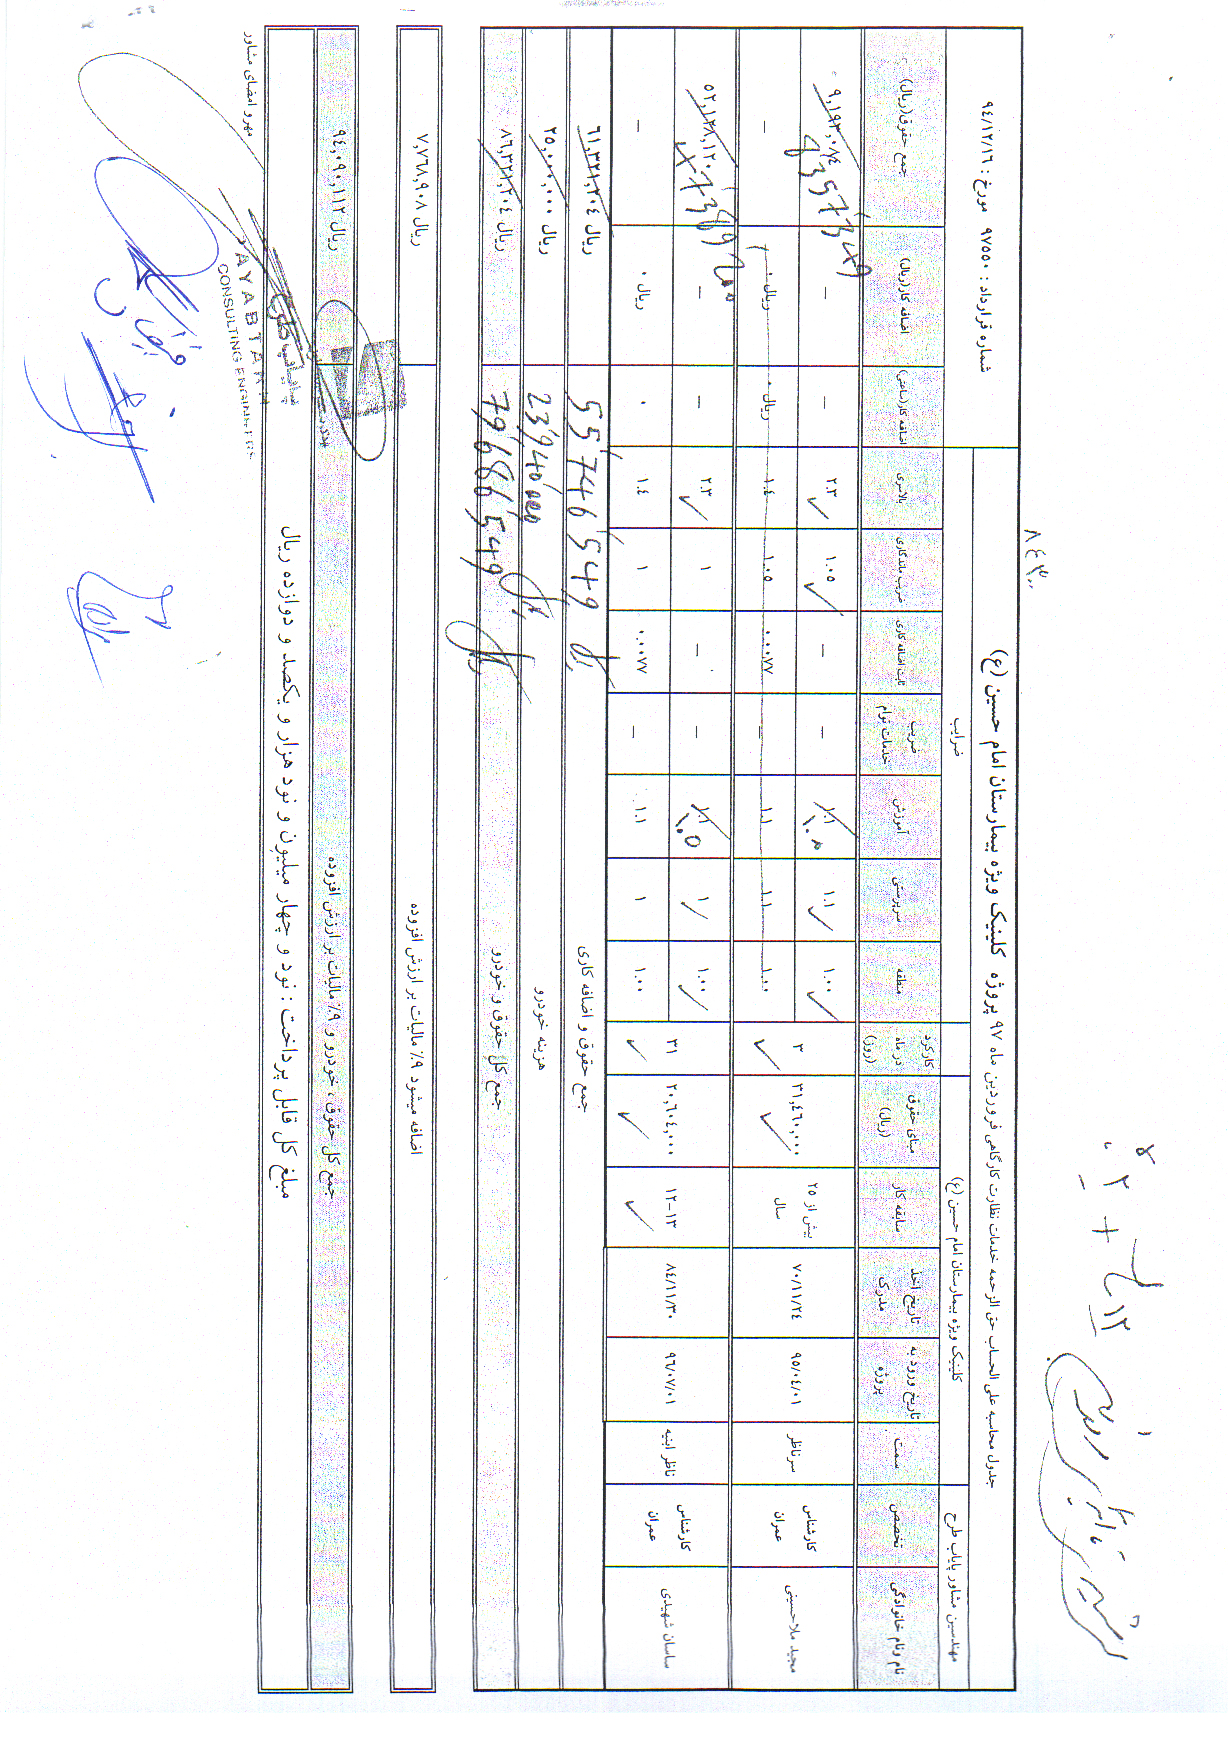 شماره قرارداد : ۹۷۵۵۰ مورخ : ۹۴/۱۲/۱۶
جدول محاسبه علی الحساب حق الزحمه خدمات نظارت کارگاهی فروردین ماه ۹۷ پروژه کلینیک ویژه بیمارستان امام حسین (ع)
مهندسین مشاور پایاب طرح
کلینیک ویژه بیمارستان امام حسین (ع)
ضرایب
نام ونام خانوادگی
تخصص
سمت
تاریخ ورود به پروژه
تاریخ اخذ مدرک
سابقه کار
مبنای حقوق (ریال)
کارکرد در ماه (روز)
منطقه
سرپرستی
آموزش
ضریب خدمات توام
ثابت اضافه کاری
ضریب ماندگاری
بالاسری
اضافه کار(ساعتی)
اضافه کار(ریال)
جمع حقوق(ریال)
مجید ملاحسینی
کارشناس عمران
سرناظر
۹۵/۰۴/۰۱
۷۰/۱۱/۲۴
بیش از ۲۵ سال
۳۱,۴۶۰,۰۰۰
۳
۱.۰۰ ۱.۱ ۱.۱ – – ۱.۰۵ ۲.۳ – – ۹,۱۹۳,۰۸۴
۱.۰۰ ۱.۱ ۱.۱ – ۰.۰۰۷۷ ۱.۰۵ ۱.۴ ۰ ریال ۰ ریال –
ساسان شهیدی
کارشناس عمران
ناظر ابنیه
۹۶/۰۷/۰۱
۸۴/۱۱/۳۰
۱۲-۱۳
۲۰,۶۰۴,۰۰۰
۳۱
۱.۰۰ ۱ ۱.۱ – – ۱ ۲.۳ – – ۵۲,۱۲۸,۱۲۰
۱.۰۵
۱.۰۰ ۱ ۱.۱ – ۰.۰۰۷۷ ۱ ۱.۴ ۰ ۰ ریال –
جمع حقوق و اضافه کاری ۶۱,۳۲۱,۲۰۴ ریال
55'746'549
هزینه خودرو ۲۵,۰۰۰,۰۰۰ ریال
23'940'000
جمع کل حقوق و خودرو ۸۶,۳۲۱,۲۰۴ ریال
79'686'549
اضافه میشود ۹٪ مالیات بر ارزش افزوده ۷,۷۶۸,۹۰۸ ریال
جمع کل حقوق ، خودرو و ۹٪ مالیات بر ارزش افزوده ۹۴,۰۹۰,۱۱۲ ریال
مبلغ کل قابل پرداخت : نود و چهار میلیون و نود هزار و یکصد و دوازده ریال
مهر و امضای مشاور
CONSULTING ENGINEERS